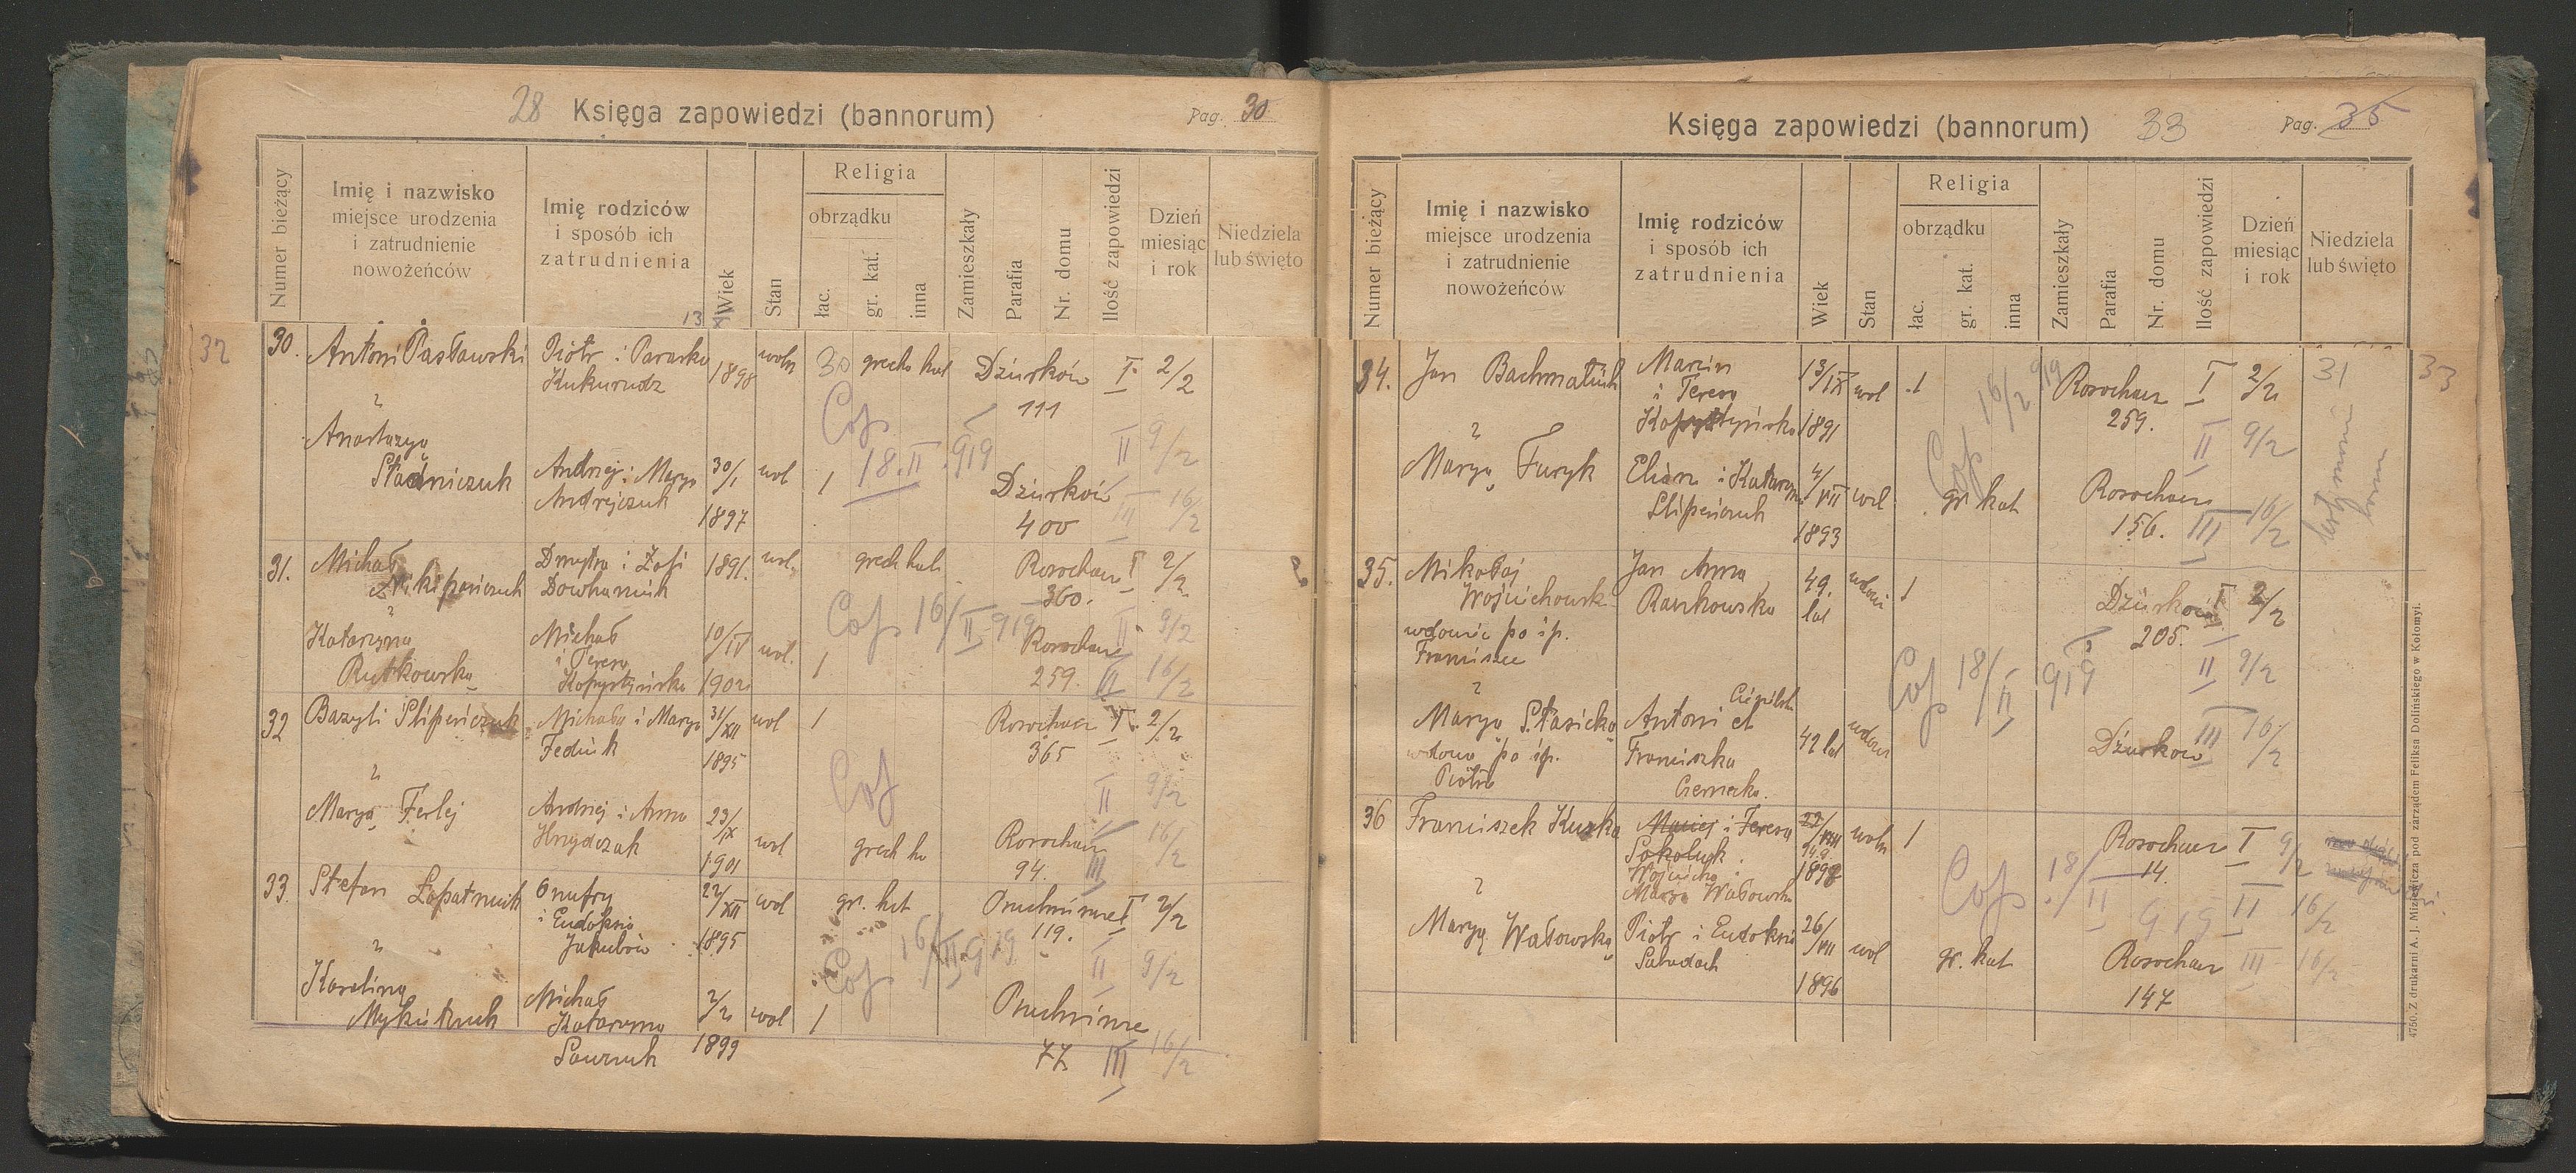 28 Księga zapowiedzi (bannorum) Pag. 30
Numer bieżący
Imię i nazwisko
miejsce urodzenia
i zatrudnienie
nowożeńców
Imię rodziców
i sposób ich
zatrudnienia
Wiek
Stan
Religia
obrządku
łac.
gr. kat.
inna
Zamieszkały
Parafia
Nr. domu
Ilość zapowiedzi
Dzień
miesiąc
i rok
Niedziela
lub święto
32
30. Antoni Pasławski Piotr i Paraska 1898 woln 30 grecko kat Dżurków I 2/2
Kukurudz 111
Anastazya II 9/2
Stadniczuk Andrzej i Marya 30/1 wol 1 18.II.919 Dżurków
Andrejczuk 1897 400 III 16/2
31. Michał Dmytro i Zofi 1891. wol. grech kat Rosochacz I 2/2
Dowhaniuk 360.
Katarzyna Michał 10/IV wol. 1 16/II 919 Rosochacz II 9/2
Rutkowska i Teresa 1902 259. III 16/2
Kopystyńska
32 Bazyli Slipeńczuk Michała i Marya 31/XII wol 1 Rosochacz I 2/2
Fediuk 1895 365
II 9/2
Marya Ferlej Andrzej i Anna 23/IX wol grech ka Rosochacz 16/2
Hrydczuk 1901 94. III
33. Stefan Łopatniuk Onufry 22/XII wol gr. kat I 2/2
i Eudoksia 1895 119.
Jakubów 16/II 919 II 9/2
Karolina Michał 2/2 wol 1
Katarzyna 1899 77 III 16/2
Księga zapowiedzi (bannorum) 33 Pag. 35
Numer bieżący
Imię i nazwisko
miejsce urodzenia
i zatrudnienie
nowożeńców
Imię rodziców
i sposób ich
zatrudnienia
Wiek
Stan
Religia
obrządku
łac.
gr. kat.
inna
Zamieszkały
Parafia
Nr. domu
Ilość zapowiedzi
Dzień
miesiąc
i rok
Niedziela
lub święto
34. Jan Bachmatiuk Marcin 13/IX wol 1 16/2 919 Rosochacz I 2/2 31 33
i Teresa 259.
Kopystyńska 1891 II 9/2
Marya Furyk Eliasz i Katarzyna 4/VII wol gr. kat Rosochacz
Slipeńczuk 1893 156. III 16/2
35. Mikołaj Jan Anna 49. 1 Dżurków I 2/2
Raszkowska lat 205.
wdowiec po śp.
Franciszce 18/II 919 II 9/2
Marya Stasicka Antoni et 42 lat wdowa III 16/2
wdowa po śp. Franciszka Dżurków
Piotrze Czernecka.
36 Franciszek Maciej i Teresa 22/VIII woln 1 Rosochacz I 9/2
Sokoluk 14.
Marya Wałowska 18/II 919 II 16/2
Marya Wałowska Piotr i Eudoksia 26/VII wol gr. kat Rosochacz III 16/2
1896 147
4750. Z drukarni A. J. Miziewicza pod zarządem Feliksa Dolińskiego w Kołomyi.